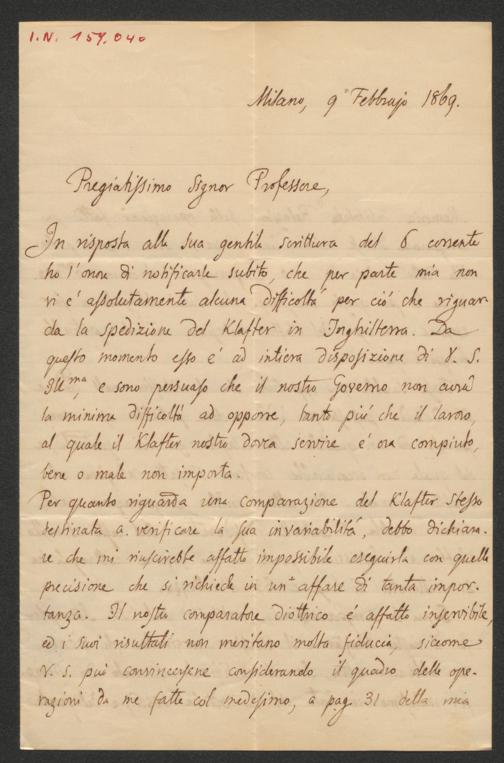 I.N. 159.040
Milano, 9 Febbrajo 1869.
Pregiatissimo Signor Professore,
In risposta alla sua gentile scrittura del 6 corrente
ho l'onore di notificarle subito, che per parte mia non
vi é assolutamente alcuna difficoltá per ció che riguar-
da la spedizione del Klafter in Inghilterra. Da
questo momento esso é ad intiera disposizione di V. S.
Illma, e sono persuaso che il nostro Governo non avrá
la minima difficoltá ad opporre, tanto piú che il lavoro,
al quale il Klafter nostro dovea servire é ora compiuto,
bene o male non importa.
Per quanto riguarda una comparazione del Klafter stesso
destinata a verificare la sua invariabilitá, debbo dichiara-
re che mi riuscirebbe affatto impossibile eseguirla con quella
precisione che si richiede in un affare di tanta impor-
tanza. Il nostro comparatore diottrico é affatto inservibile,
ed i suoi risultati non meritano molta fiducia, siccome
V. S. può convincersene considerando il quadro delle ope-
razioni da me fatte col medesimo, a pag. 31 della mia